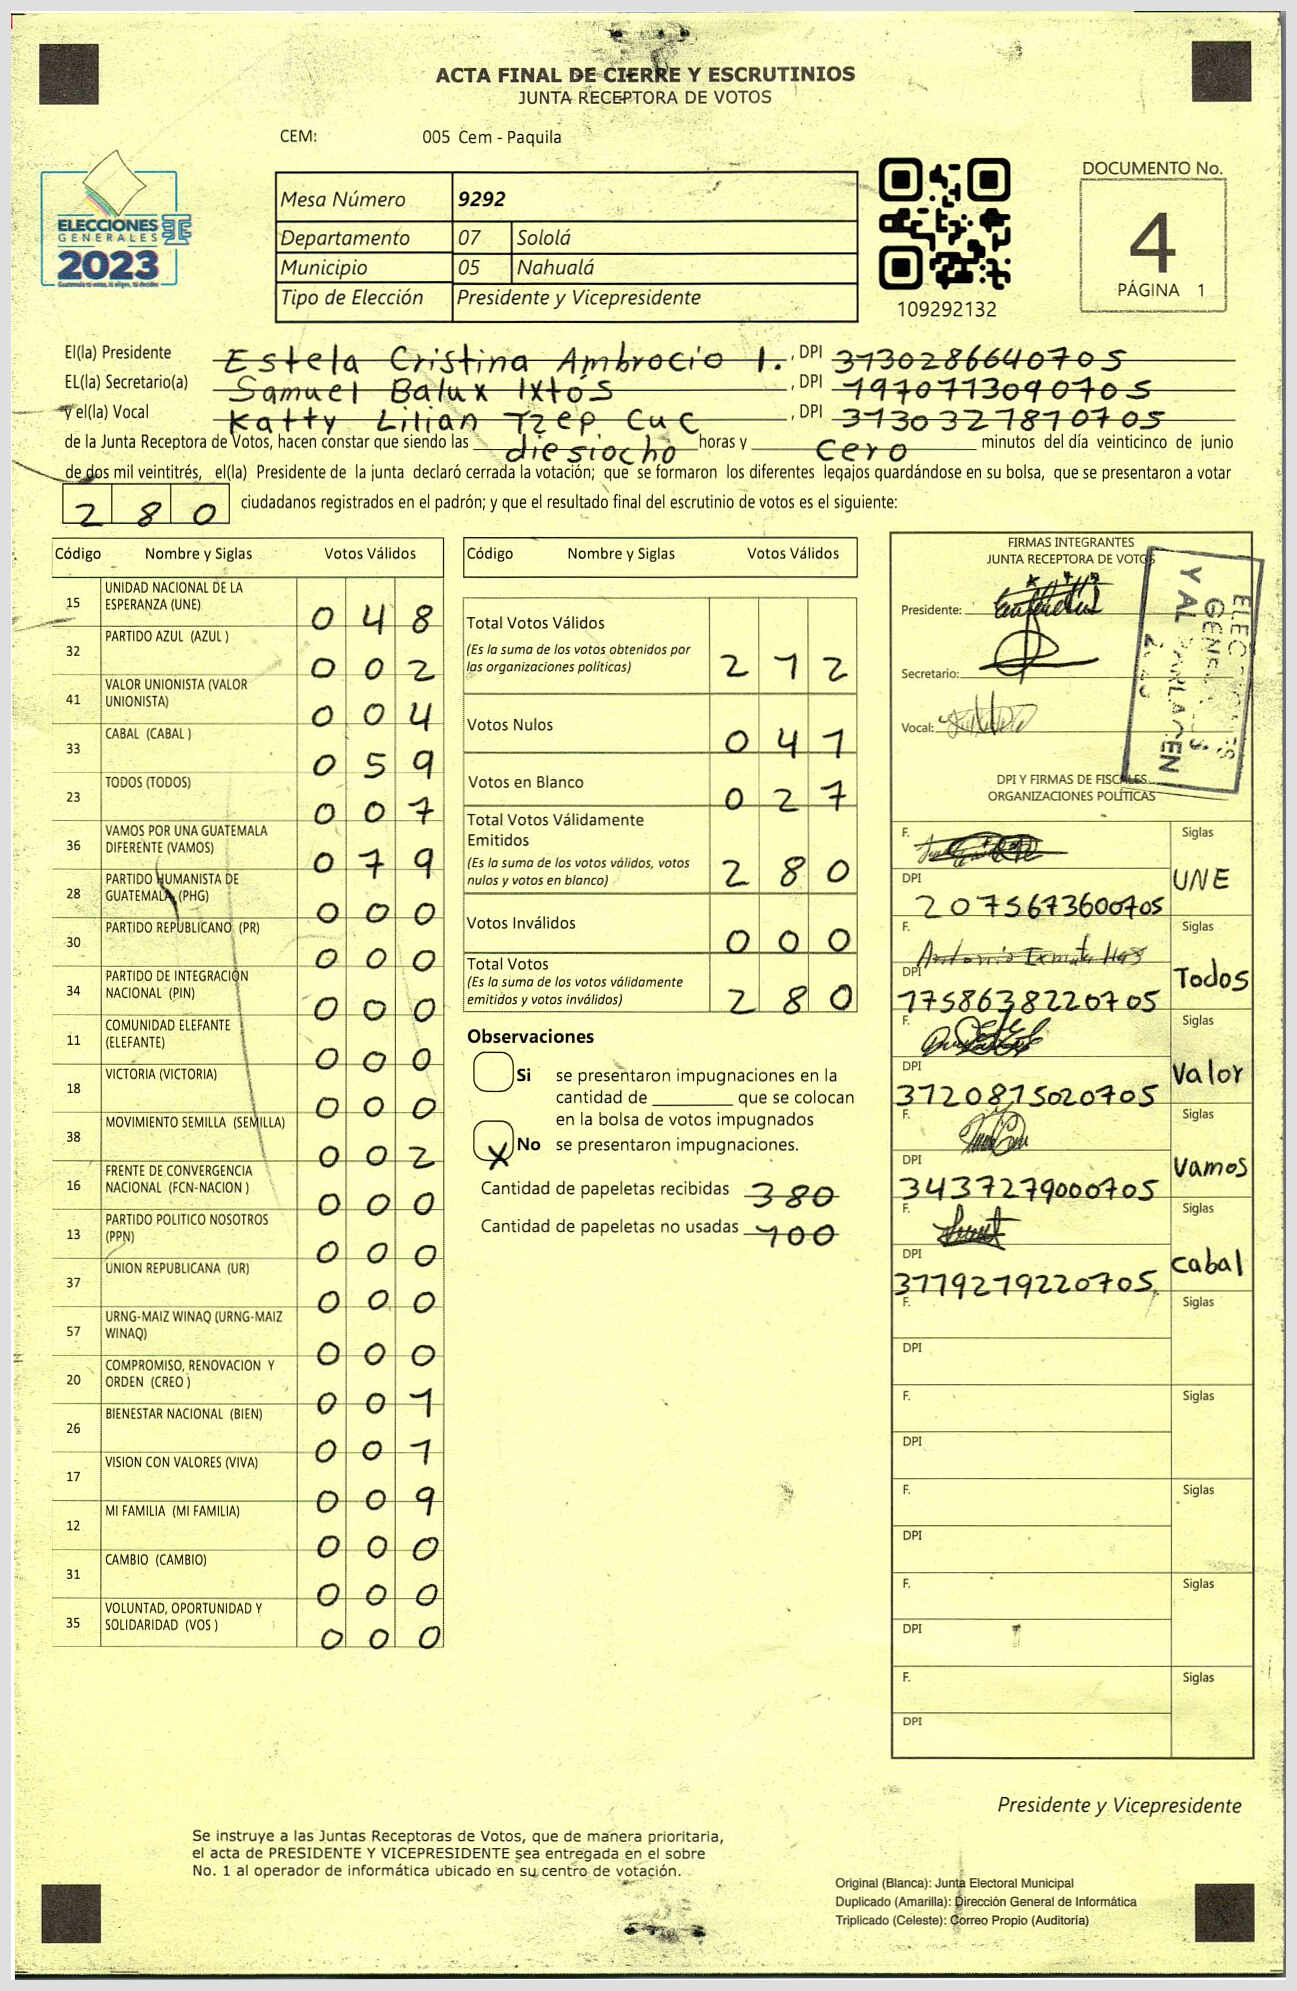 ACTA FINAL DE CIERRE Y ESCRUTINIOS
JUNTA RECEPTORA DE VOTOS
CEM: 005 Cem - Paquila
ELECCIONES
GENERALES
2023
Mesa Número 9292
Departamento 07 Sololá
Municipio 05 Nahualá
Tipo de Elección Presidente y Vicepresidente
109292132
DOCUMENTO No.
4
PÁGINA 1
El(la) Presidente Estela Cristina Ambrocio I. , DPI 3130286640705
EL(la) Secretario(a) Samuel Balux Ixtós , DPI 1970773090705
y el(la) Vocal Katty Lilian Tzep Cuc , DPI 3130327870705
de la Junta Receptora de Votos, hacen constar que siendo las diesiocho horas y cero minutos del día veinticinco de junio
de dos mil veintitrés, el(la) Presidente de la junta declaró cerrada la votación; que se formaron los diferentes legajos guardándose en su bolsa, que se presentaron a votar
280 ciudadanos registrados en el padrón; y que el resultado final del escrutinio de votos es el siguiente:
Código Nombre y Siglas Votos Válidos
15 UNIDAD NACIONAL DE LA ESPERANZA (UNE) 048
32 PARTIDO AZUL (AZUL ) 002
41 VALOR UNIONISTA (VALOR UNIONISTA) 004
33 CABAL (CABAL ) 059
23 TODOS (TODOS) 007
36 VAMOS POR UNA GUATEMALA DIFERENTE (VAMOS) 079
28 PARTIDO HUMANISTA DE GUATEMALA (PHG) 000
30 PARTIDO REPUBLICANO (PR) 000
34 PARTIDO DE INTEGRACIÓN NACIONAL (PIN) 000
11 COMUNIDAD ELEFANTE (ELEFANTE) 000
18 VICTORIA (VICTORIA) 000
38 MOVIMIENTO SEMILLA (SEMILLA) 002
16 FRENTE DE CONVERGENCIA NACIONAL (FCN-NACION ) 000
13 PARTIDO POLITICO NOSOTROS (PPN) 000
37 UNION REPUBLICANA (UR) 000
57 URNG-MAIZ WINAQ (URNG-MAIZ WINAQ) 000
20 COMPROMISO, RENOVACION Y ORDEN (CREO ) 001
26 BIENESTAR NACIONAL (BIEN) 001
17 VISION CON VALORES (VIVA) 009
12 MI FAMILIA (MI FAMILIA) 000
31 CAMBIO (CAMBIO) 000
35 VOLUNTAD, OPORTUNIDAD Y SOLIDARIDAD (VOS ) 000
Código Nombre y Siglas Votos Válidos
Total Votos Válidos 212
(Es la suma de los votos obtenidos por
las organizaciones políticas)
Votos Nulos 041
Votos en Blanco 027
Total Votos Válidamente
Emitidos 280
(Es la suma de los votos válidos, votos
nulos y votos en blanco)
Votos Inválidos 000
Total Votos 280
(Es la suma de los votos válidamente
emitidos y votos inválidos)
Observaciones
Si se presentaron impugnaciones en la
cantidad de que se colocan
en la bolsa de votos impugnados
X No se presentaron impugnaciones.
Cantidad de papeletas recibidas 380
Cantidad de papeletas no usadas 100
FIRMAS INTEGRANTES
JUNTA RECEPTORA DE VOTOS
Presidente:
Secretario:
Vocal:
DPI Y FIRMAS DE FISCALES
ORGANIZACIONES POLÍTICAS
F. Siglas UNE
DPI 2075673600705
F. Antonio Siglas Todos
DPI 1758638220705
F. Siglas Valor
DPI 3720815020705
F. Siglas Vamos
DPI 3437279000705
F. Siglas Cabal
DPI 3779279220705
F. Siglas
DPI
F. Siglas
DPI
F. Siglas
DPI
F. Siglas
DPI
F. Siglas
DPI
Presidente y Vicepresidente
Se instruye a las Juntas Receptoras de Votos, que de manera prioritaria,
el acta de PRESIDENTE Y VICEPRESIDENTE sea entregada en el sobre
No. 1 al operador de informática ubicado en su centro de votación.
Original (Blanca): Junta Electoral Municipal
Duplicado (Amarilla): Dirección General de Informática
Triplicado (Celeste): Correo Propio (Auditoría)